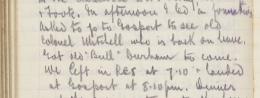 & took. In afternoon I led a formation
asked to go to Gosport to see old
Colonel Mitchell who is back on leave.
Got old "Bull" Durham to come.
We left in RE8 at 7.10 & landed
at Gosport at 8.10pm. Dinner